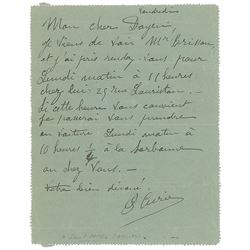 Vendredi
Mon cher Doyen
Je viens de voir Mr Brisson
et j'ai pris rendez-vous pour
Lundi matin à 11 heures
chez lui 25 rue Lauriston.
Si cette heure vous convient
je passerai vous prendre
en voiture Lundi matin à
10 heures 1/4 à la Sorbonne
ou chez vous.
Votre bien dévoué.
P Curie